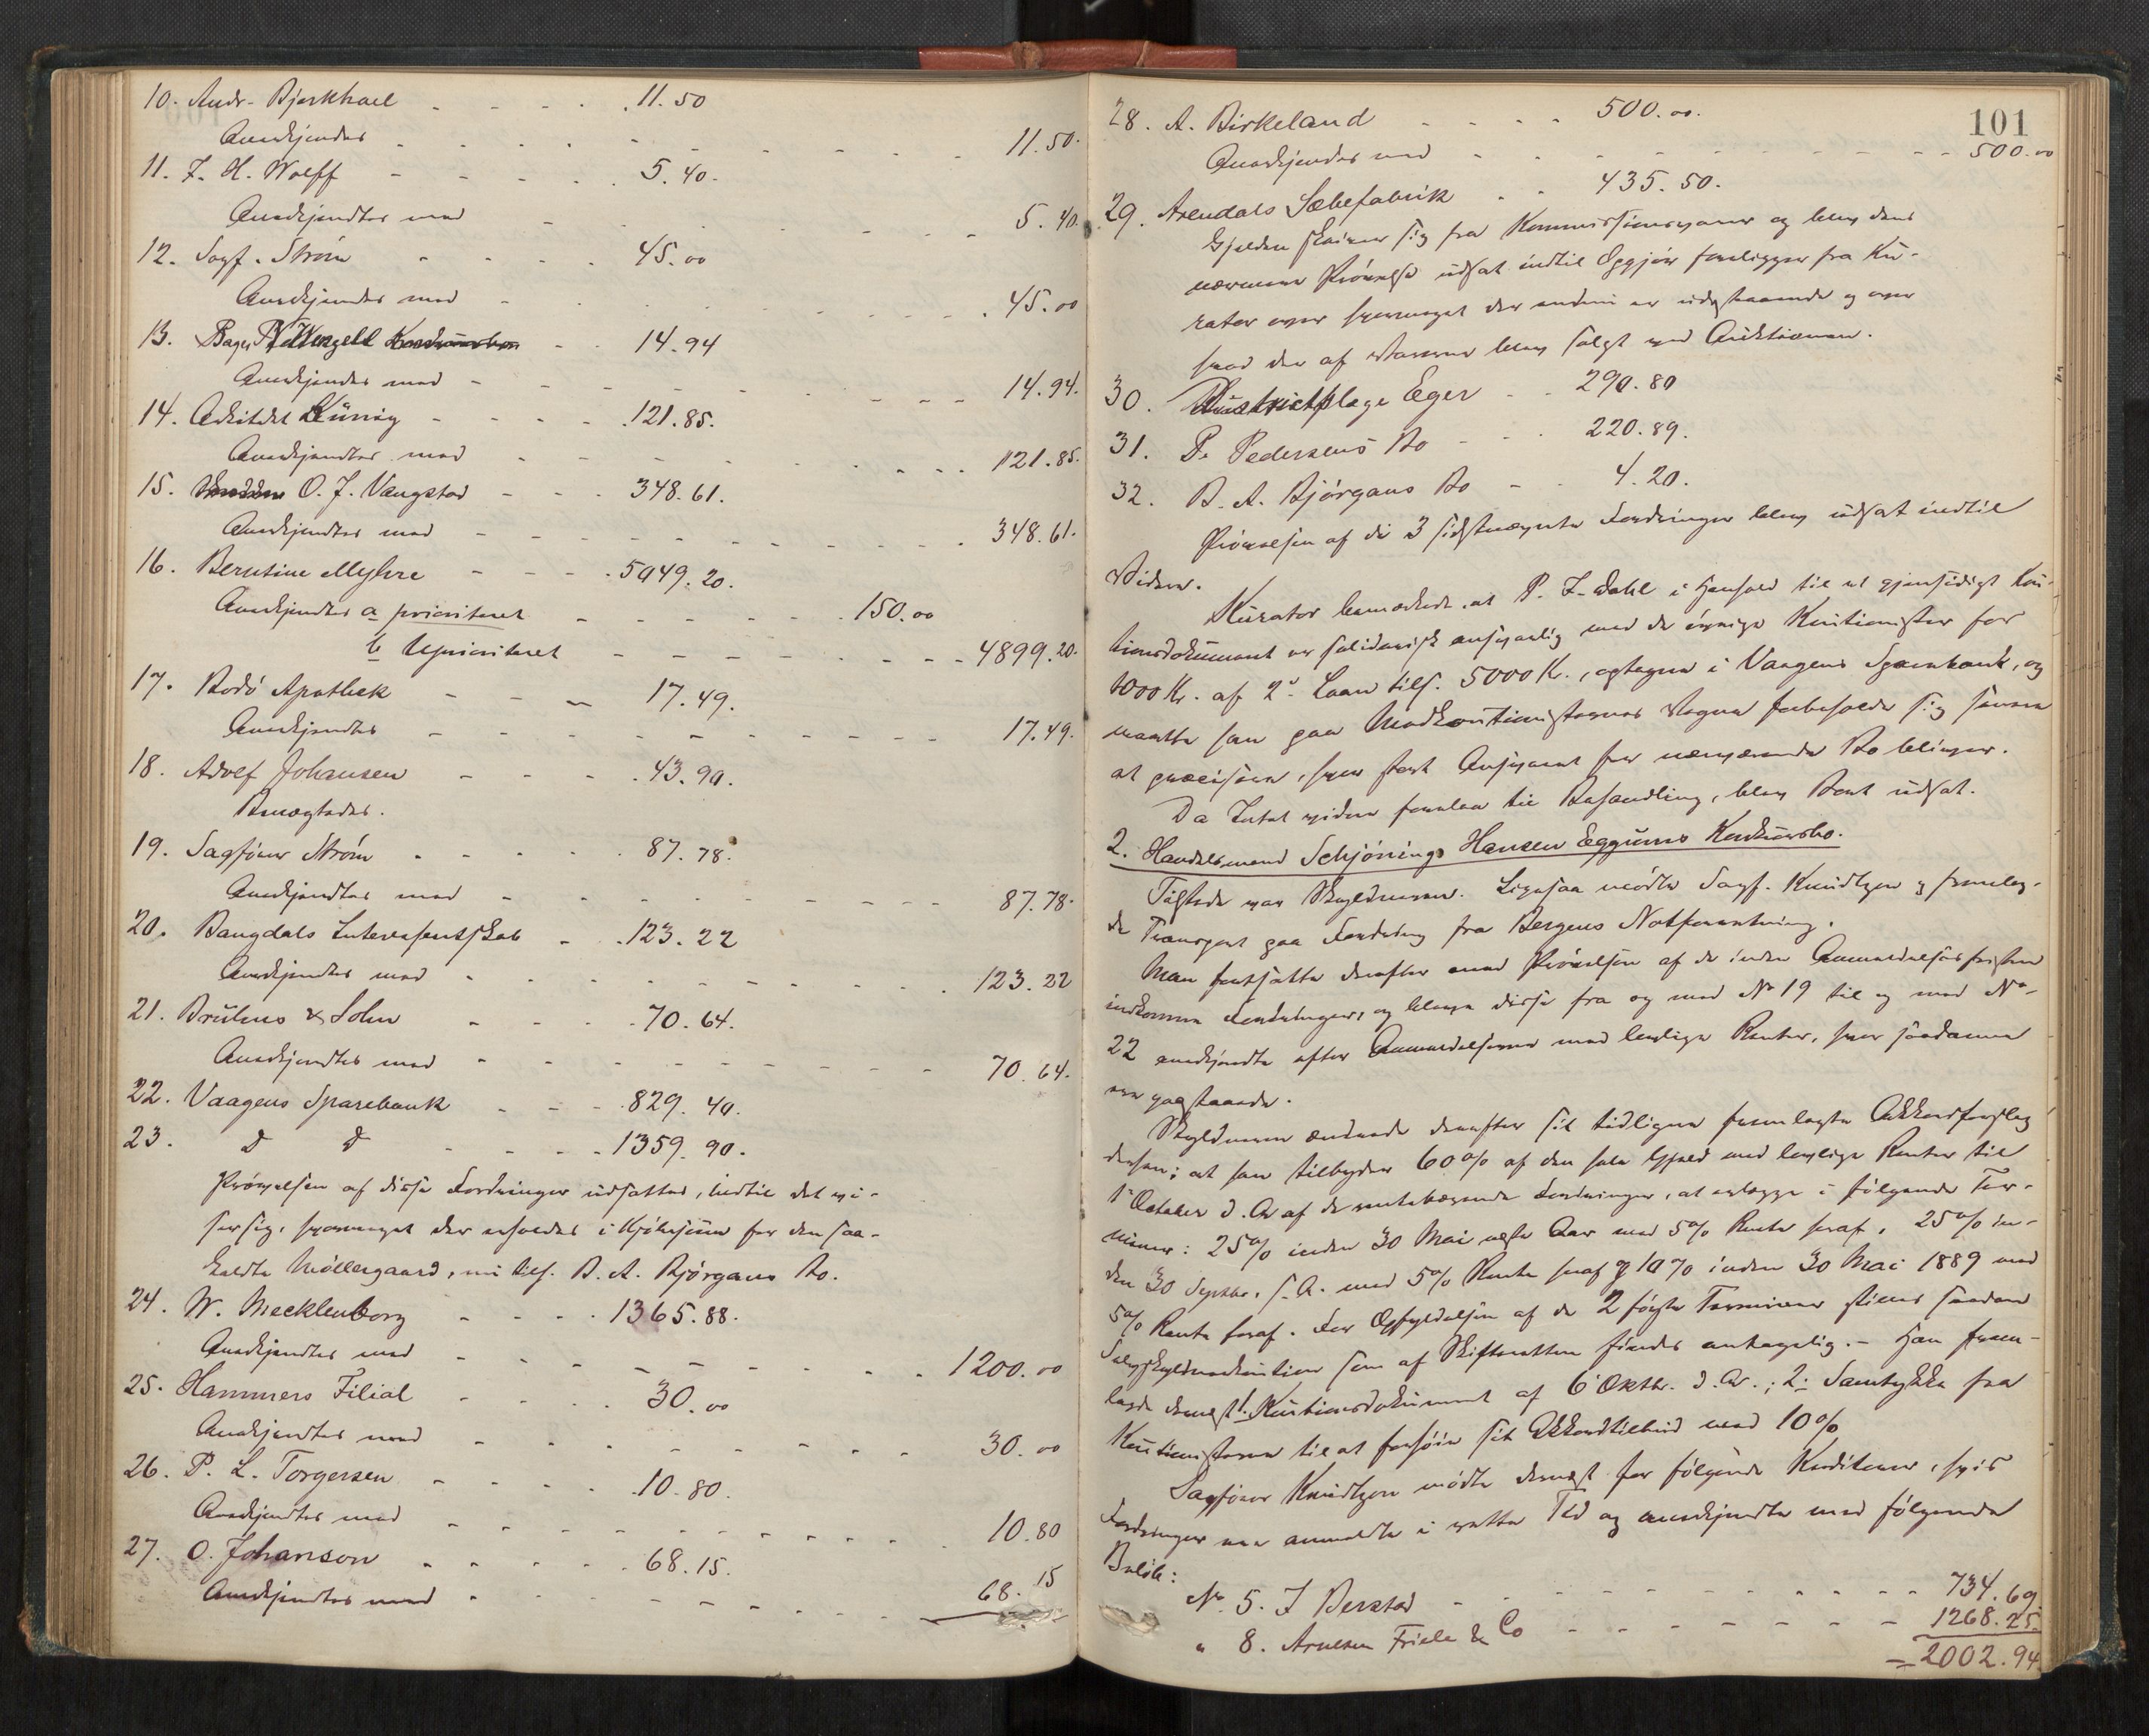 10. Andr. Bjerkhael - - - - 11.50
Anerkjendes - - - - 11.50.
11. F. H. Wolff - - - - 5.40.
Anerkjendtes med - - - - 5.40.
12. Sagf. Strøm - - - - 45.00
Anerkjendes med - - - - 45.00
13. Bager Wengell - - 14.94
Anerkjendes med - - - - 14.94.
14. Arkitekt König - - - - 121.85.
Anerkjendtes med - - - - 121.85.
15. O. J. Vangstad - - - 348.61.
Anerkjendtes med - - - - 348.61.
16. Berntine Myhre - - - - 5049.20.
Anerkjendtes a prioriteret - - - - 150.00
b Uprioriteret - - - - 4899.20.
17. Bodø Apothek - - - 17.49.
Anerkjendtes - - - - 17.49.
18. Adolf Johansen - - - - 43.90.
Benægtedes.
19. Sagfører Strøm - - - - 87.78.
Anerkjendtes med - - - - 87.78.
20. Bangdals Interessentskab - - 123.22
Anerkjendtes med - - - - 123.22
21. Brühns & Sohn - - - - 70.64.
Anerkjendtes med - - - - 70.64.
22. Vaagens Sparebank - - - 829.40.
23. D D - - - - 1359.90.
Prøvelsen af disse Fordringer udsattes, indtil det vi-
ser sig, hvormeget der erholdes i Kjøbesum for den saa-
kaldte Møllergaard, nu tilh. B. A. Bjørgans Bo.
24. W. Mecklenborg - - - - 1365.88.
Anerkjendtes med - - - - 1200.00
25. Hammers Filial - - - - 30.00
Anerkjendtes med - - - - 30.00
26. P. L. Torgersen - - - - 10.80.
Anerkjendtes med - - - - 10.80
27. O. Johanson - - - - 68.15.
Anerkjendtes med - - - - 68.15
101
28. A. Birkeland - - - - 500.00.
Anerkjendes med - - - - 500.00
29. Arendals Sæbefabrik - - 435.50.
Gjelden skriver sig fra Kommissionsvarer og blev dens
nærmere Prøvelse udsat indtil Opgjør foreligger fra Ku-
rator over hvormeget der endnu er udestaaende og over
hvad der af Varerne blev solgt ved Auktionen.
30. Distriktslæge Eger - - 290.80
31. P. Pedersens Bo - - - 220.89.
32. B. A. Bjørgans Bo - - 4.20.
Prøvelsen af de 3 sidstnævnte Fordringer blev udsat indtil
Videre.
Kurator bemærkede, at P. J. Dahl i Henhold til et gjensidigt Kau-
tionsdokument er solidarisk ansvarlig med de øvrige Kautionister for
1000 Kr. af 2de Laan tils. 5000 Kr., optagne i Vaagens Sparebank, og
maatte han paa Medkautionisternes Vegne forbeholde sig senere
at præcisere, hvor stort Ansvaret for nærværende Bo bliver.
Da Intet videre forelaa til Behandling, blev Boet udsat.
2. Handelsmand Schjønings Hansen Eggums Konkursbo.
Tilstede var Skyldneren. Ligesaa mødte Sagf. Knudtzon og fremlag-
de Transport paa Fordring fra Bergens Notforretning.
Man fortsatte derefter med Prøvelsen af de inden Anmeldelsesfristen
indkomne Fordringer, og bleve disse fra og med No 19 til og med No
22 anerkjendte efter Anmeldelserne med lovlige Renter, hvor saadanne
ere paastaaede.
Skyldneren ændrede derefter sit tidligere fremlagte Akkordforslag
derhen; at han tilbyder 60% af den hele Gjæld med lovlige Renter til
1 October d. A. af de rentebærende Fordringer, at erlægge i følgende Ter-
miner: 25% inden 30 Mai næste Aar med 5% Rente heraf, 25% in-
den 30 Septbr. s. A. med 5% Rente heraf og 10% inden 30 Mai 1889 med
5% Rente heraf. For Opfyldelsen af de 2 første Terminer stilles saadan
Selvskyldnerkaution som af Skifteretten findes antagelig. - Han frem-
lagde dernæst 1. Kautionsdokument af 6 Oktbr. d. A.; 2. Samtykke fra
Kautionisterne til at forhøie sit Akkordtilbud med 10%
Sagfører Knudtzon mødte dernæst for følgende Kreditorer, hvis
Fordringer var anmeldte i rette Tid og anerkjendte med følgende
Beløb:
No. 5. J Berstad - - - - 734.69.
" 8. Arnesen Friele & Co - - - - 1268.25.
= 2002.94.